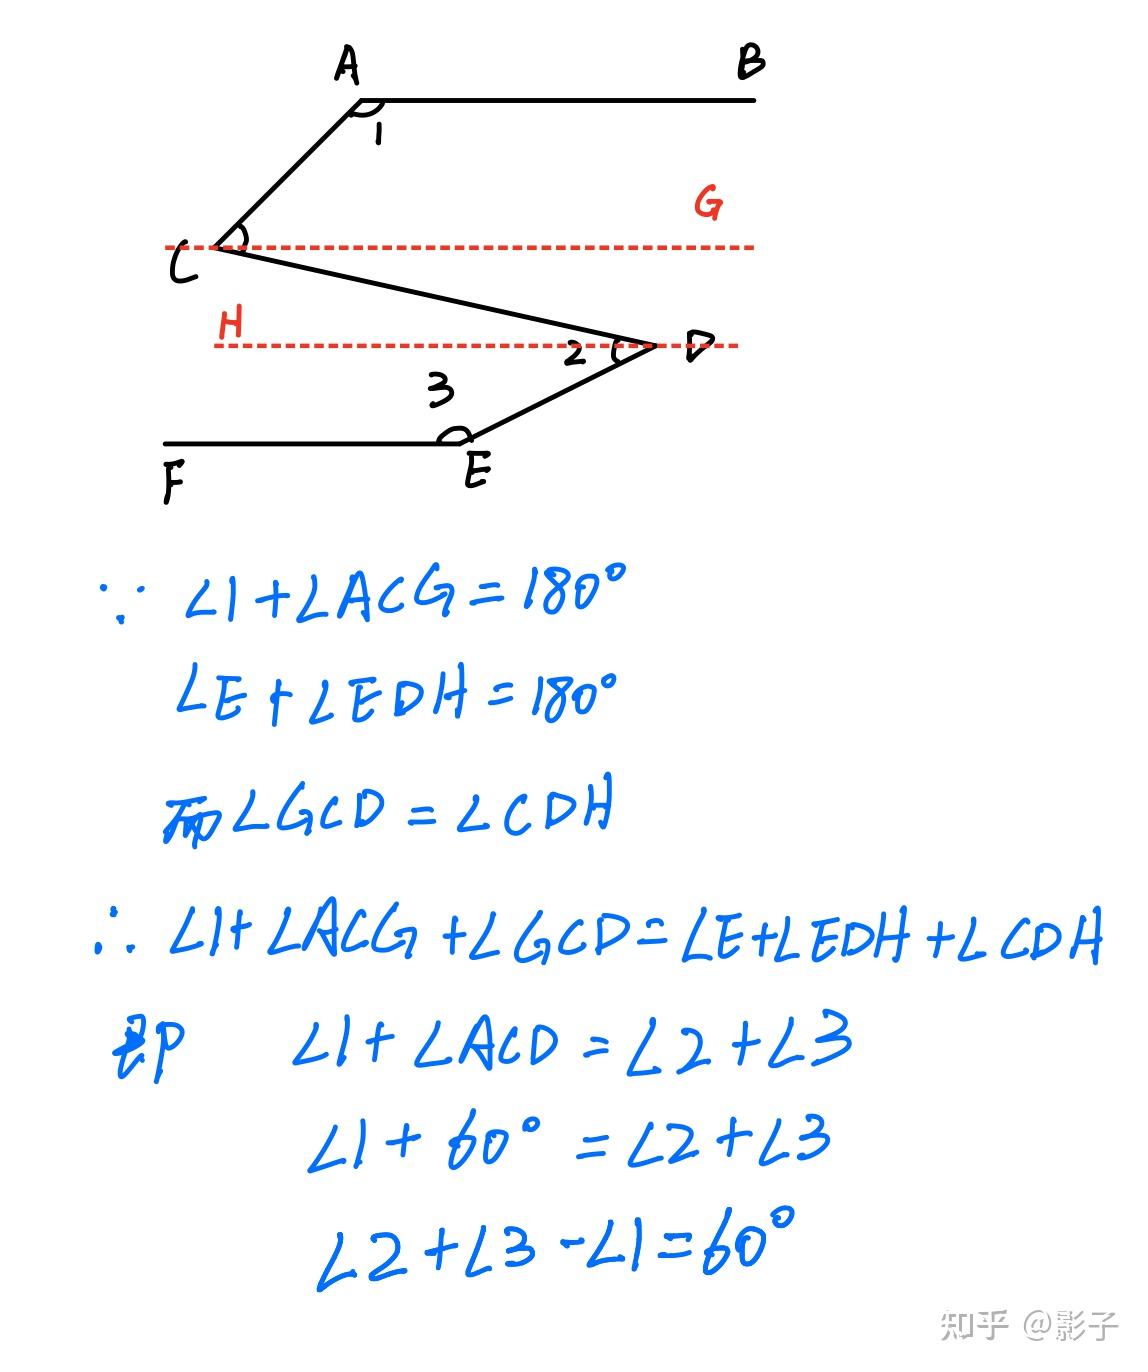 A B
1
G
C
H
2 D
3
F E
∵ ∠1+∠ACG=180°
∠E+∠EDH=180°
而∠GCD=∠CDH
∴ ∠1+∠ACG+∠GCD=∠E+∠EDH+∠CDH
即 ∠1+∠ACD=∠2+∠3
∠1+60°=∠2+∠3
∠2+∠3-∠1=60°
知乎 @影子